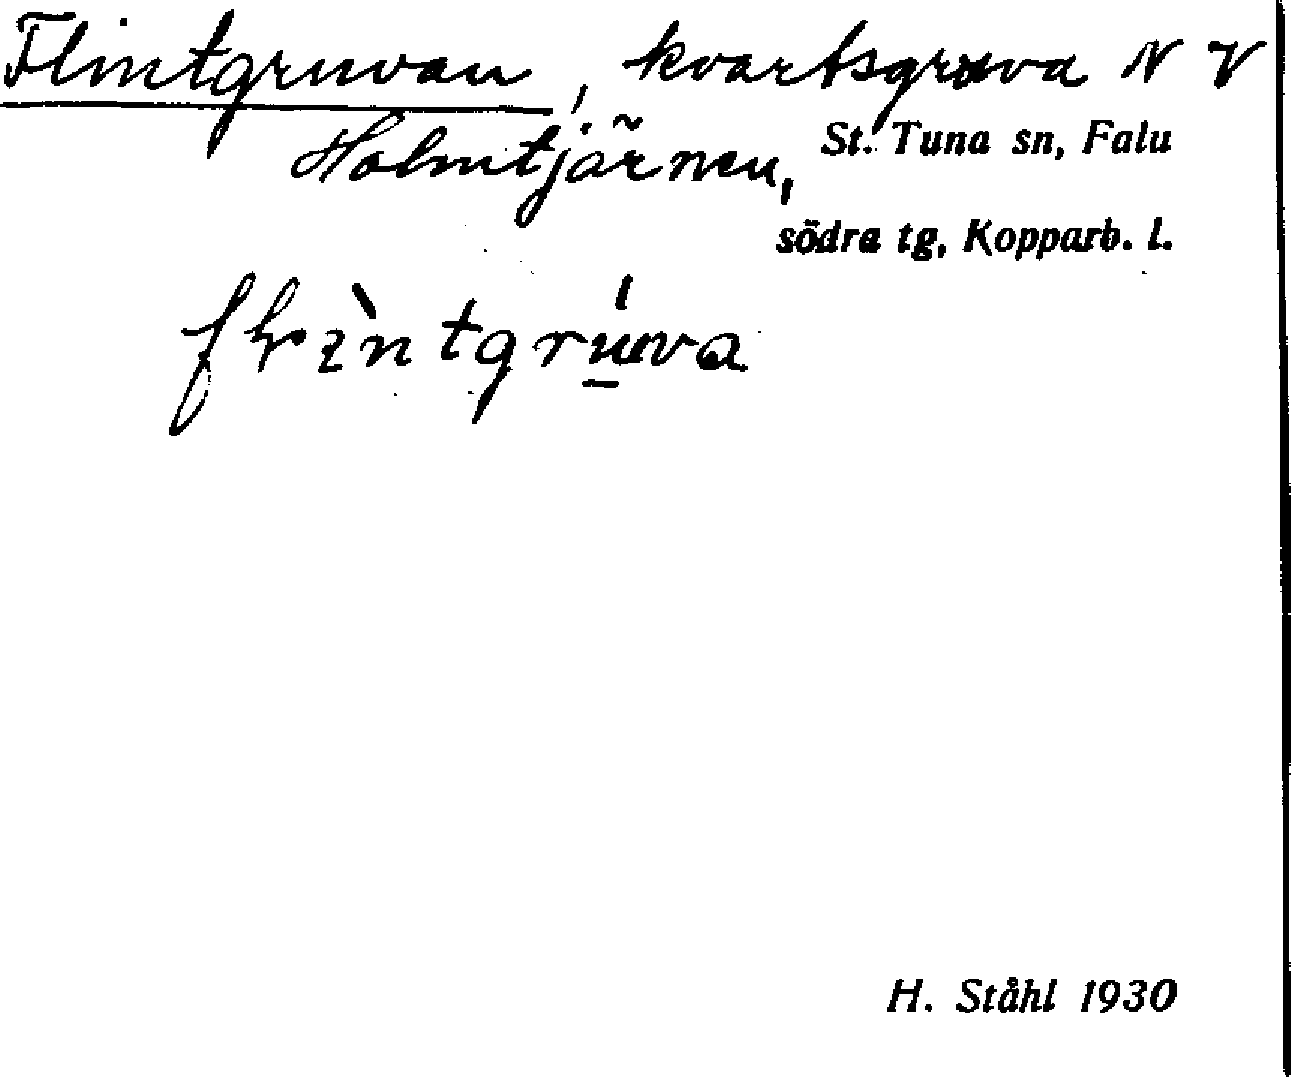 Flintgruvan, kvartsgruva N V
Holmtjärnen, St. Tuna sn, Falu
södra tg, Kopparb. l.
H. Ståhl 1930